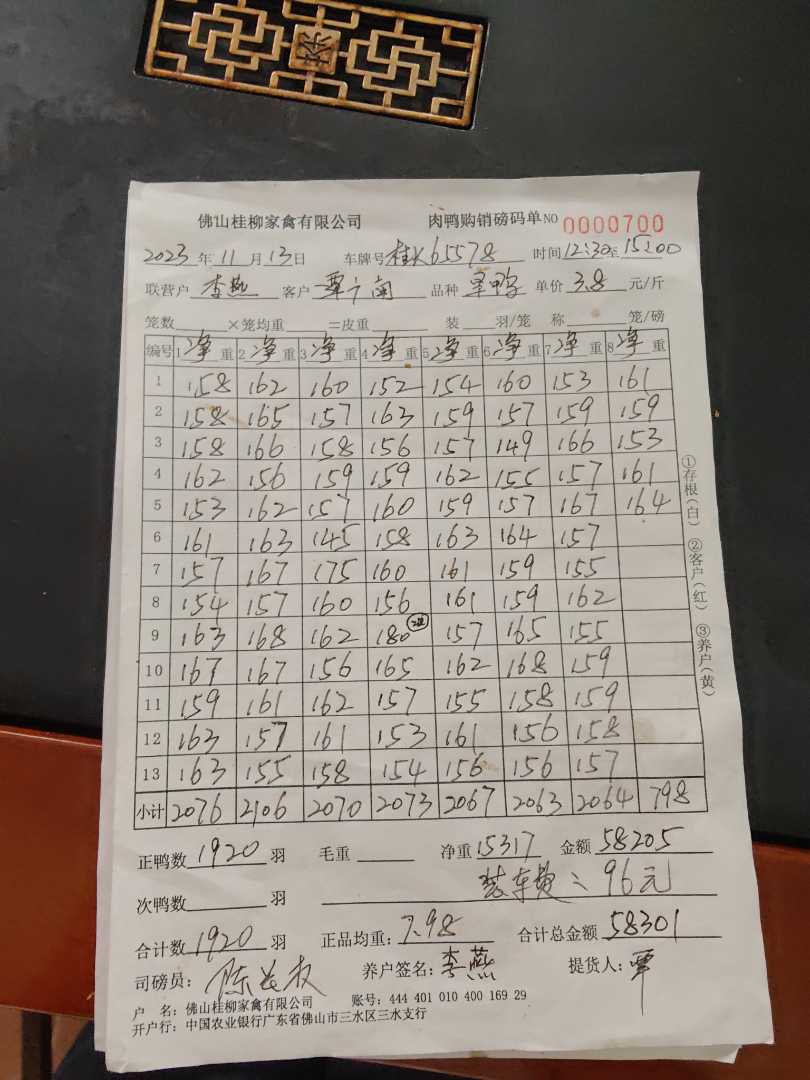 茶
佛山桂柳家禽有限公司 肉鸭购销磅码单NO 0000700
2023年11月13日 车牌号 桂K65578 时间12:30至15:00
联营户 李燕 客户 覃广南 品种 旱鸭 单价 3.8 元/斤
笼数 ×笼均重 =皮重 装 羽/笼 称 笼/磅
编号 1净重 2净重 3净重 4净重 5净重 6净重 7净重 8净重
1 158 162 160 152 154 160 153 161
2 158 165 157 163 159 157 159 159
3 158 166 158 156 157 149 166 153
4 162 156 159 159 162 155 157 161
5 153 162 157 160 159 157 167 164
6 161 163 145 158 163 164 157
7 157 167 175 160 161 159 155
8 154 157 160 156 161 159 162
9 163 168 162 180 157 165 155
10 167 167 156 165 162 168 159
11 159 161 162 157 155 158 159
12 163 157 161 153 161 156 158
13 163 155 158 154 156 156 157
小计 2076 2106 2070 2073 2067 2063 2064 798
正鸭数 1920 羽 毛重 净重 15317 金额 58205
次鸭数 羽 装车费: 96元
合计数 1920 羽 正品均重: 7.98 合计总金额 58301
司磅员: 陈 养户签名: 李燕 提货人: 覃
户 名: 佛山桂柳家禽有限公司 账号: 444 401 010 400 169 29
开户行: 中国农业银行广东省佛山市三水区三水支行
①存根(白) ②客户(红) ③养户(黄)